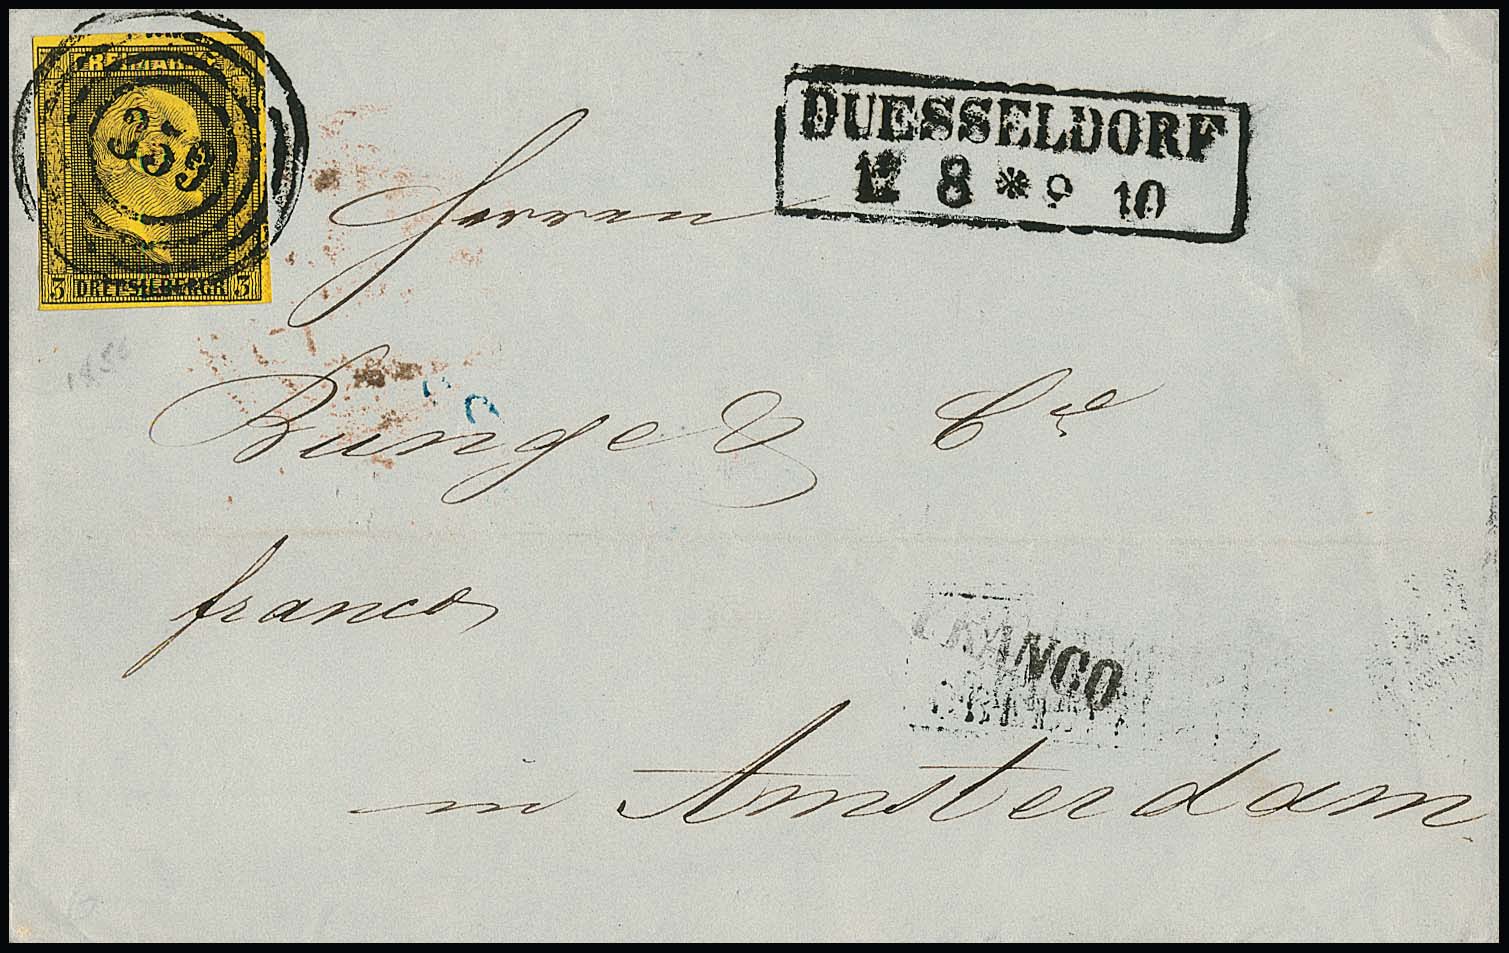 FREIMARKE
359
3 DREI SILBERGR 3
DUESSELDORF
12 8 * 9 10
Herren
Bunge & Cie
franco
FRANCO
in Amsterdam.